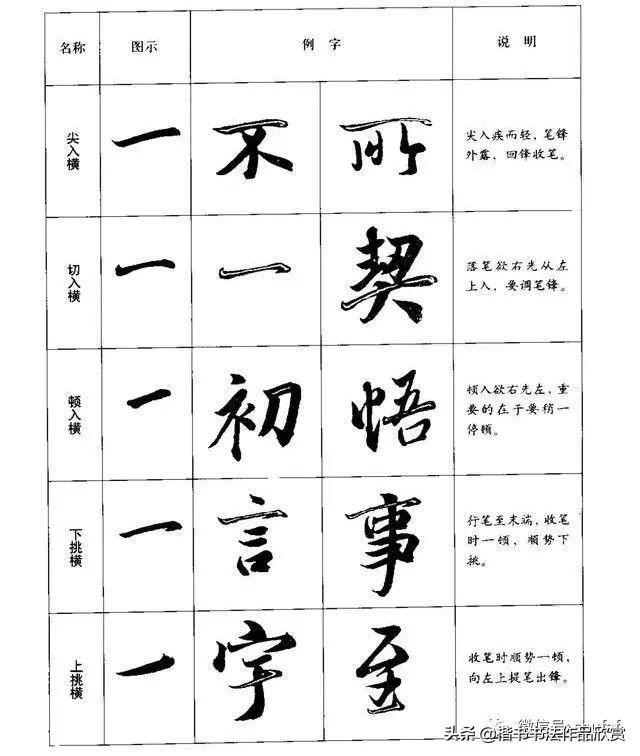 名称 图示 例字 说明
尖入横 一 不 所 尖入疾而轻，笔锋
外露，回锋收笔。
切入横 一 一 契 落笔欲右先从左
上入，要调笔锋。
顿入横 一 初 悟 顿入欲右先左，重
要的在于要稍一
停顿。
下挑横 一 言 事 行笔至末端，收笔
时一顿，顺势下
挑。
上挑横 一 字 至 收笔时顺势一顿，
向左上提笔出锋。
头条@楷书书法作品欣赏